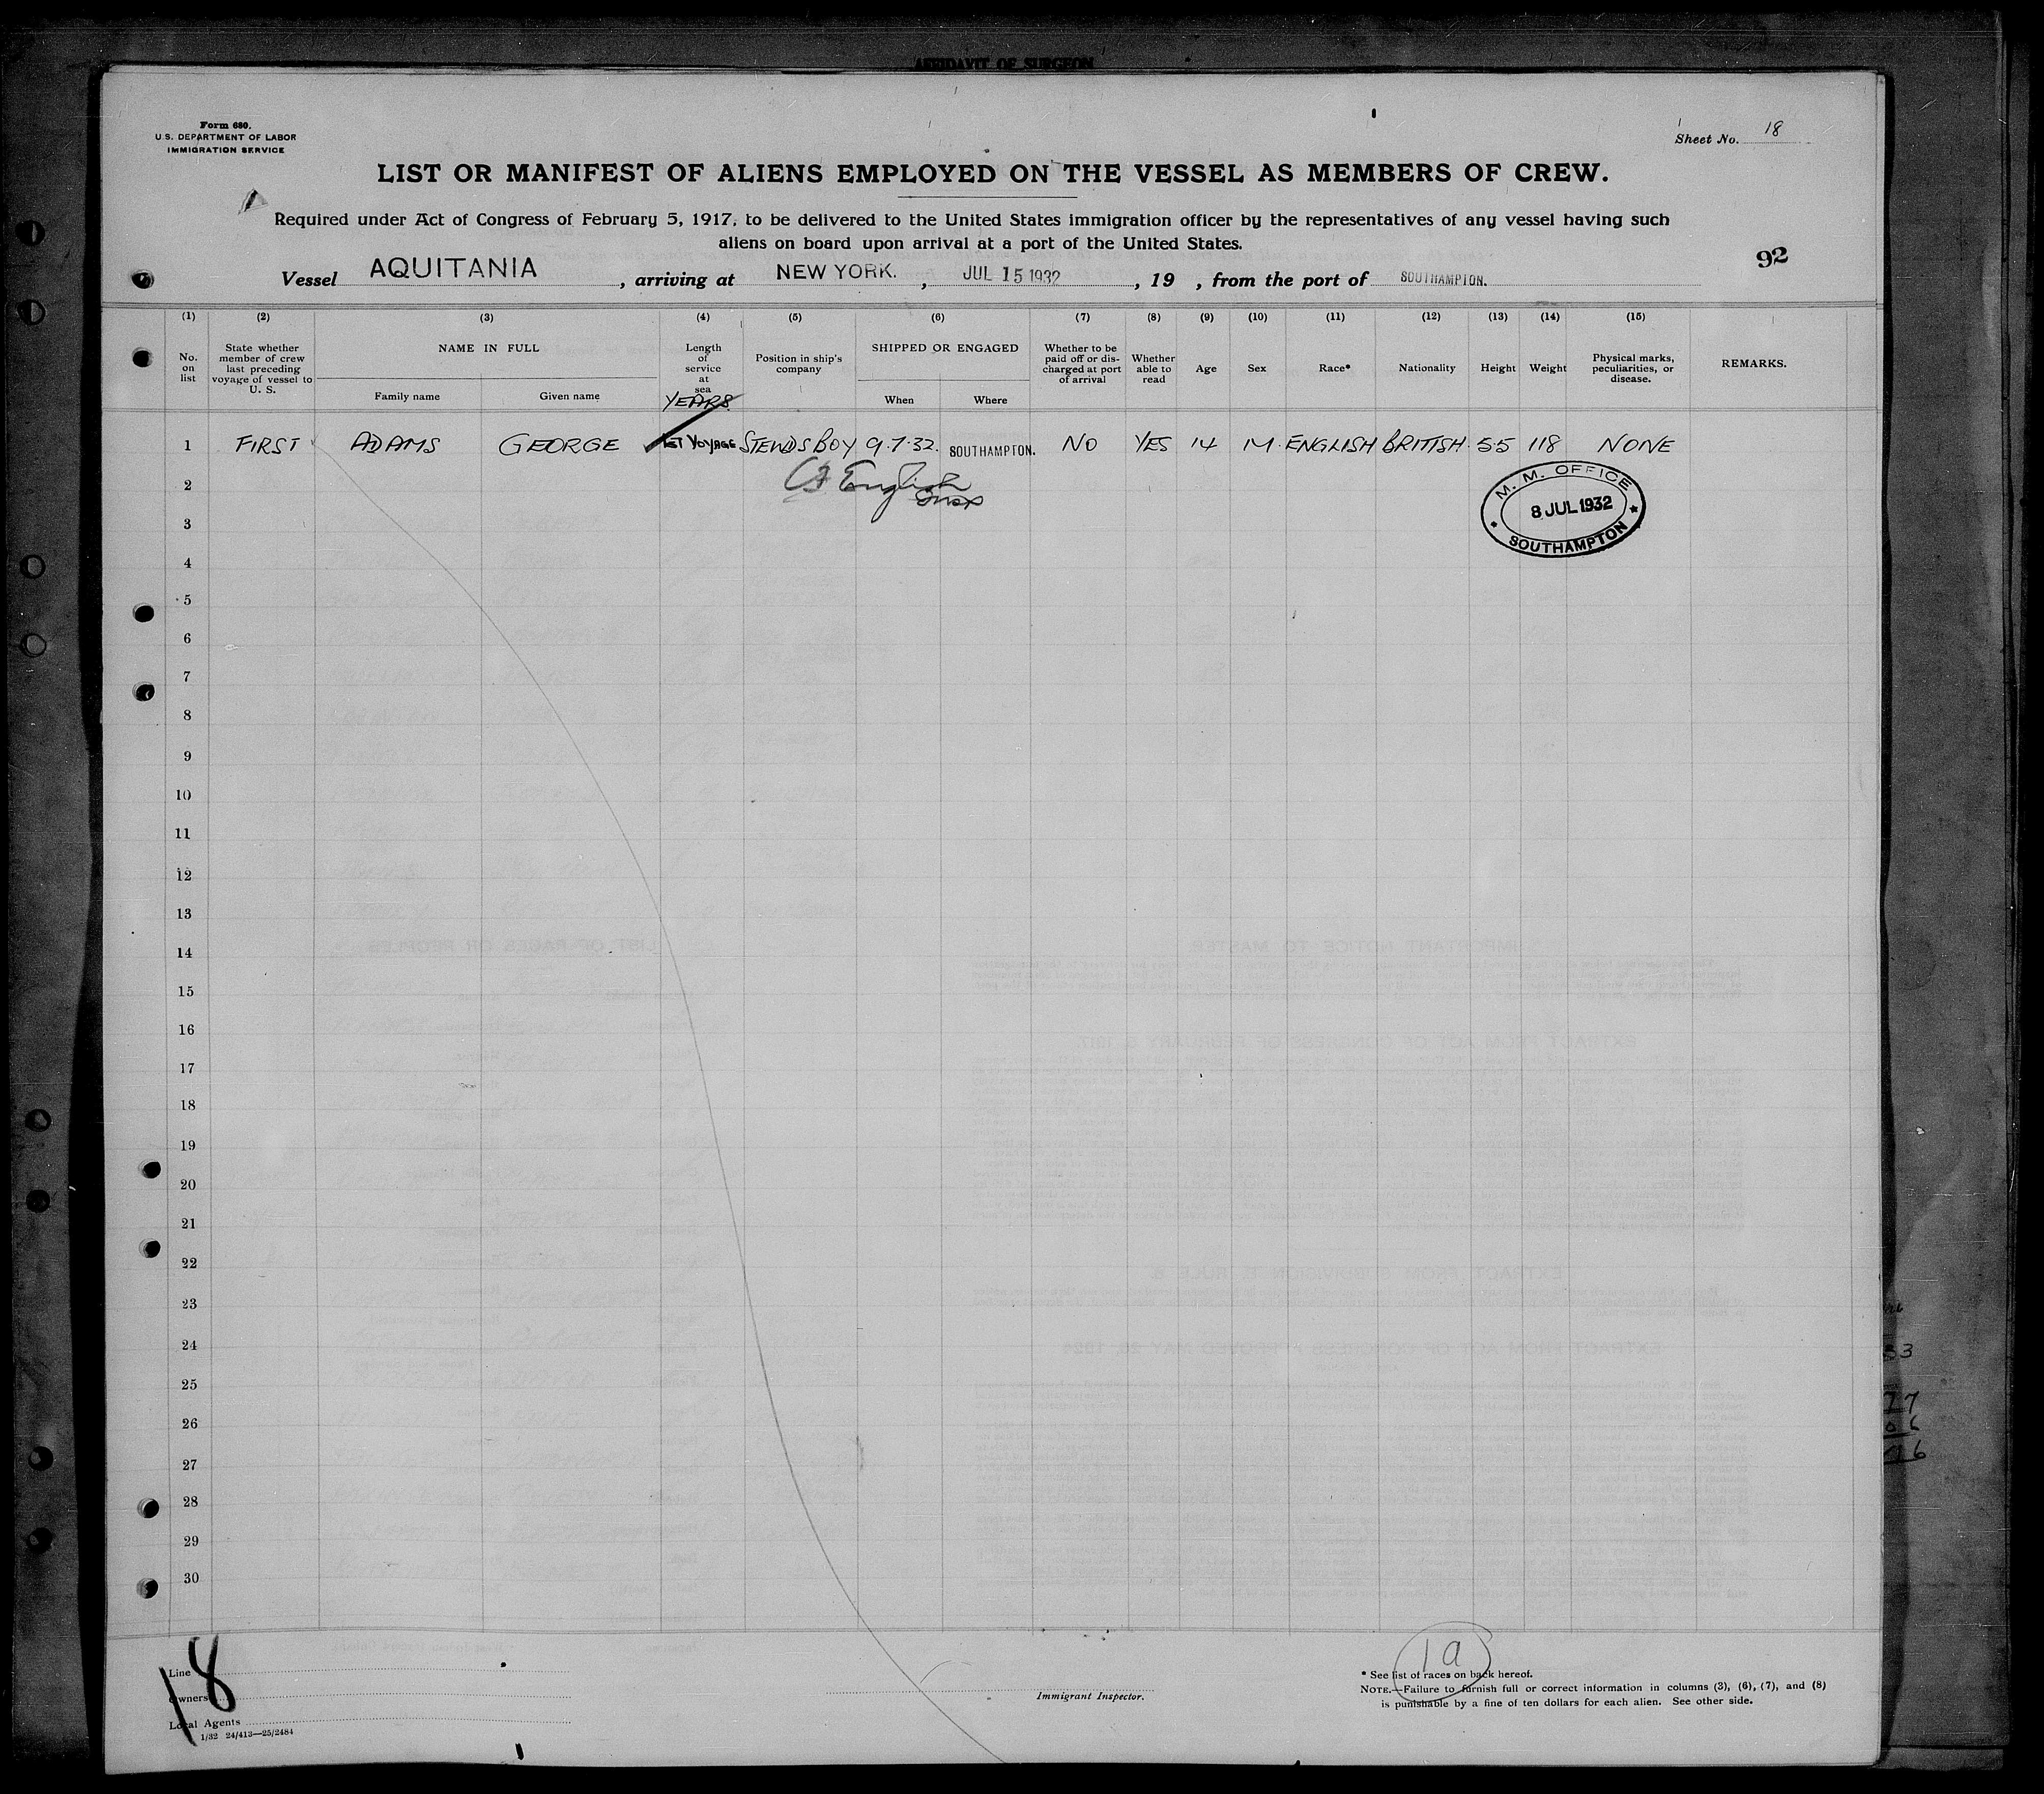 AFFIDAVIT OF SURGEON
Form 680.
U.S. DEPARTMENT OF LABOR
IMMIGRATION SERVICE
Sheet No. 18
LIST OR MANIFEST OF ALIENS EMPLOYED ON THE VESSEL AS MEMBERS OF CREW.
Required under Act of Congress of February 5, 1917, to be delivered to the United States immigration officer by the representatives of any vessel having such
aliens on board upon arrival at a port of the United States.
92
Vessel AQUITANIA , arriving at NEW YORK. , JUL 15 1932 , 19 , from the port of SOUTHAMPTON.
(1) (2) (3) (4) (5) (6) (7) (8) (9) (10) (11) (12) (13) (14) (15)
No. on list
State whether member of crew last preceding voyage of vessel to U. S.
NAME IN FULL
Family name
Given name
Length of service at sea
YEARS
Position in ship's company
SHIPPED OR ENGAGED
When
Where
Whether to be paid off or discharged at port of arrival
Whether able to read
Age
Sex
Race*
Nationality
Height
Weight
Physical marks, peculiarities, or disease.
REMARKS.
1 FIRST ADAMS GEORGE 1ST VOYAGE STEWDS BOY 9.7.32. SOUTHAMPTON. NO YES 14 M. ENGLISH BRITISH. 5.5 118 NONE
English
M. M. OFFICE
8 JUL 1932
SOUTHAMPTON
2
3
4
5
6
7
8
9
10
11
12
13
14
15
16
17
18
19
20
21
22
23
24
25
26
27
28
29
30
18
1a
Line
Owners
Local Agents
1/32 24/413—25/2484
Immigrant Inspector.
* See list of races on back hereof.
NOTE.—Failure to furnish full or correct information in columns (3), (6), (7), and (8)
is punishable by a fine of ten dollars for each alien. See other side.